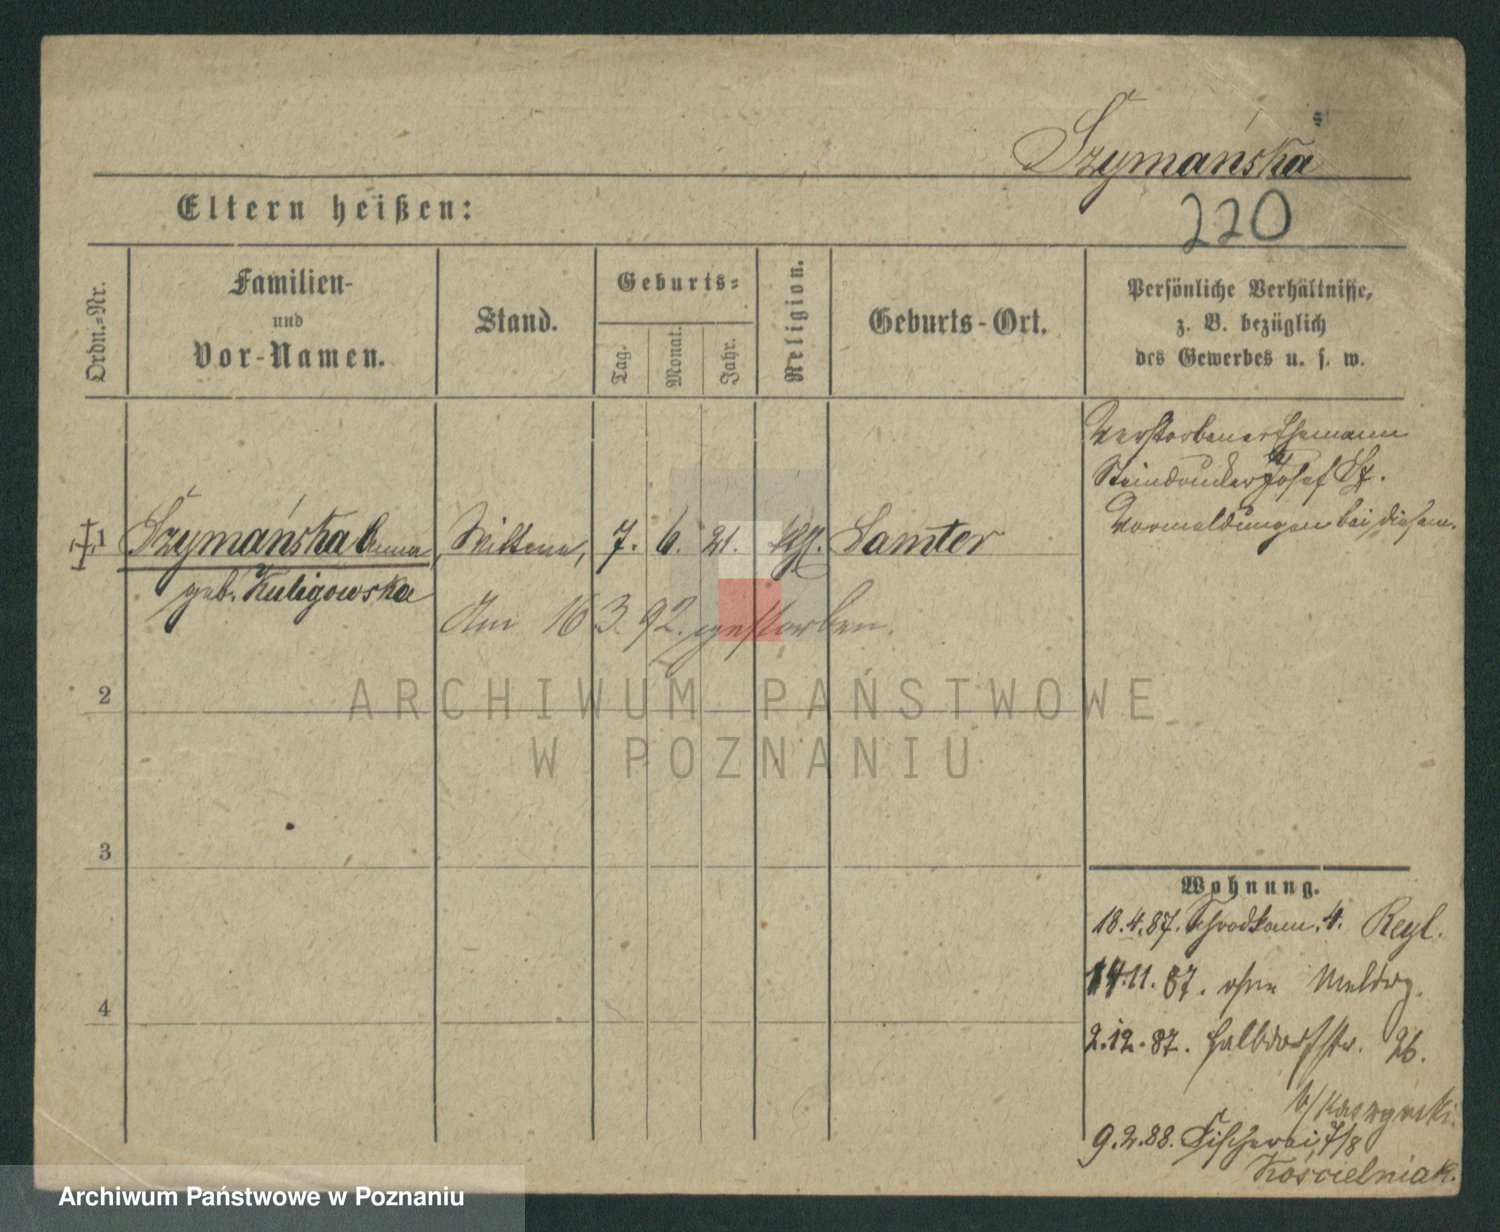 Szymańska
220
Eltern heißen:
Ordn.-Nr.
Familien-
und
Vor-Namen.
Stand.
Geburts-
Tag.
Monat.
Jahr.
Religion.
Geburts-Ort.
Persönliche Verhältnisse,
z. B. bezüglich
des Gewerbes u. s. w.
Verstorbener Ehemann
Steindrucker Josef Sz.
Vormeldungen bei diesem.
1 Szymańska Anna Wittwe, 7. 6. 21. kth. Samter
geb. Kuligowska
Am 16 3. 92. gestorben.
ARCHIWUM PAŃSTWOWE
W POZNANIU
2
3
4
Wohnung.
18.4.87. 4.
14.11.87. ohne Meldng.
2.12.87. Halbdorfstr. 26.
b/
9.2.88. Fischerei 7/8
Kościelniak.
Archiwum Państwowe w Poznaniu